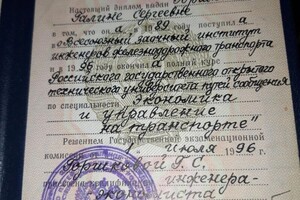 Настоящий диплом выдан
Галине Сергеевне
в том, что она в 1989 году поступила в
Всесоюзный заочный институт
инженеров железнодорожного транспорта
и в 1996 году окончила полный курс
Российского государственного открытого
технического университета путей сообщения
по специальности "Экономика
и управление
на транспорте"
Решением Государственной экзаменационной
комиссии от июля 1996 г.
Горшковой Г.С.
присвоена квалификация инженера-
экономиста